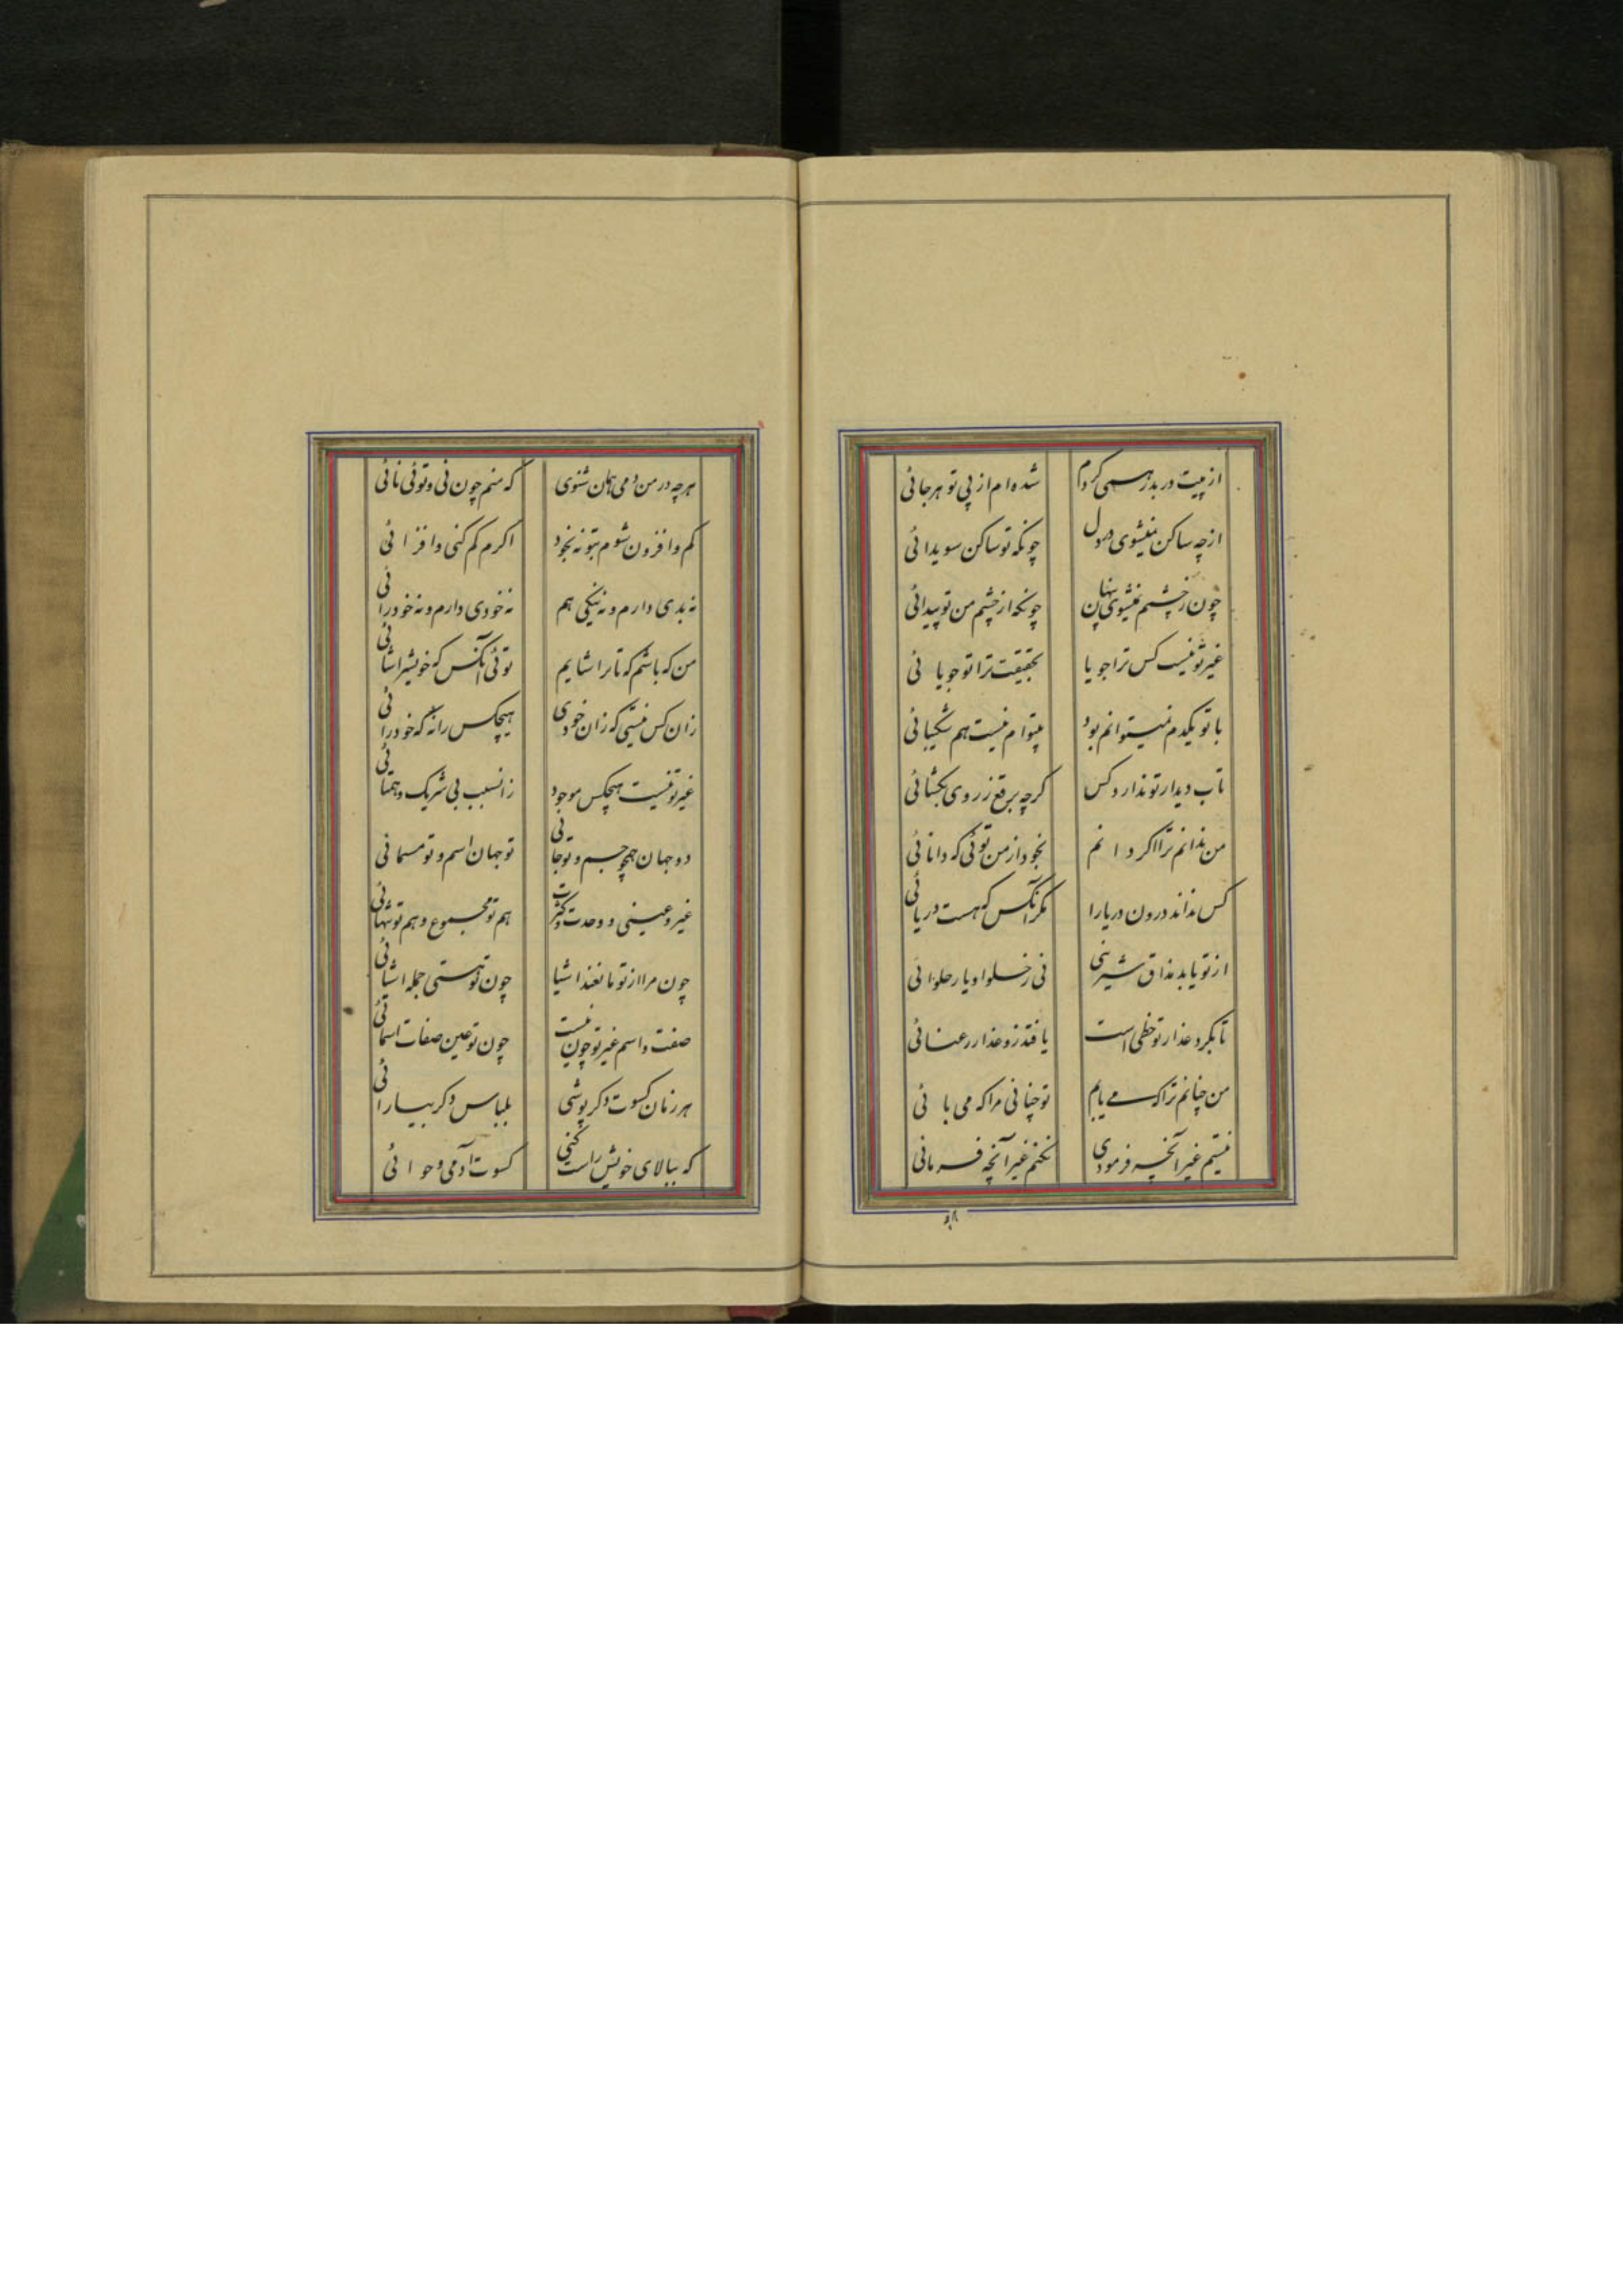 از پیت در بدر همی کردم شده‌ام از پی تو هرجائی
از چه ساکن نمیشوی در دل چونکه تو ساکن سویدائی
چون ز چشمم نمیشوی پنهان چونکه از چشم من تو پیدائی
غیر تو نیست کس ترا جویا بحقیقت ترا تو جویائی
با تو یکدم نمیتوانم بود بیتوام نیست هم شکیبائی
تاب دیدار تو ندارد کس کرچه برقع ز روی بکشائی
من ندانم ترا اکر دانم بخود از من توئی که دانائی
کس نداند درون دریا را مکر آنکس که هست دریائی
از تو یابد مذاق شیرینی نی ز حلوا و یار حلوائی
تا بکرد عذار تو خطی است یافتد زو عذار رعنائی
من چنانم ترا که می یابم تو چنانی مرا که می بائی
نیستم غیر آنچه فرمودی نکنم غیر آنچه فرمائی
۵۸
هرچه در من دمی همان شنوی که منم چون نی و توئی نائی
کم و افزون شوم بتو نه بخود اکرم کم کنی و افزائی
نه بدی دارم و نه نیکی هم نه خودی دارم و نه خودرائی
من که باشم که تا ترا شایم توئی آنکس که خویش را شائی
زان کس نیستی که زان خودی هیچکس را نه که خودرائی
غیر تو نیست هیچکس موجود زانسبب بی شریک و همتائی
دو جهان همچو جسم و تو جانی تو جهان اسم و تو مسمائی
غیر و عینی و وحدت و کثرت هم تو مجموع و هم تو تنهائی
چون مرا از تو مانعند اشیا چون تو هستی جمله اشیائی
صفت و اسم غیر تو چون نیست چون تو عین صفات اسمائی
هر زمان کسوت دکر پوشی بلباس دکر بیارائی
که ببالای خویش راست کنی کسوت آدمی و حوائی